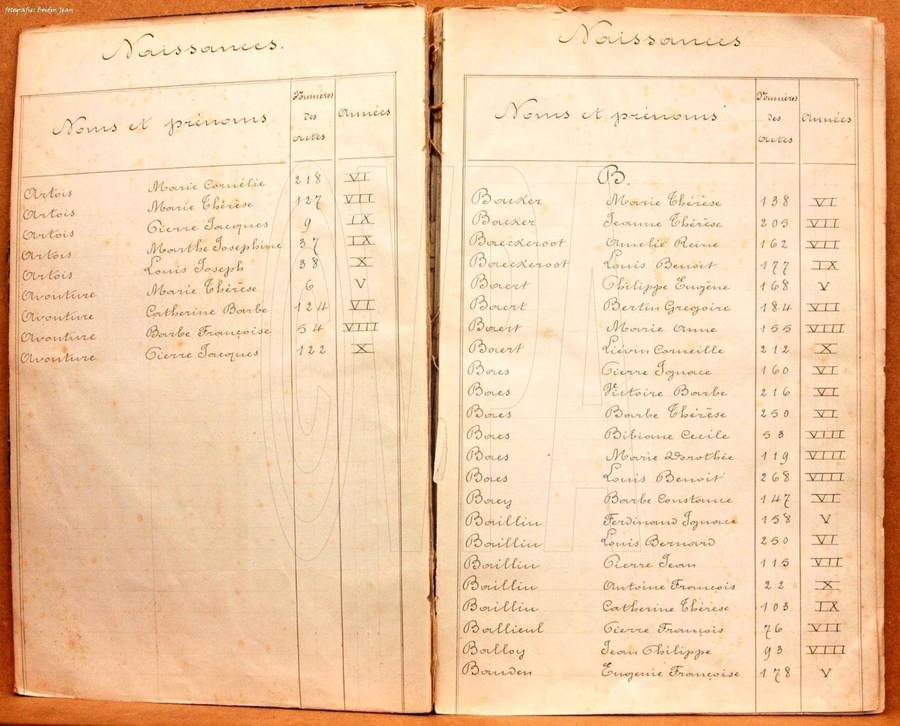 fotografie: Beidyn Jean
Naissances.
Noms et prénoms Numéros des actes Années
Artois Marie Cornélie 218 VI
Artois Marie Thérèse 127 VII
Artois Pierre Jacques 9 IX
Artois Marthe Josephine 37 IX
Artois Louis Joseph 38 X
Avonture Marie Thérèse 6 V
Avonture Catherine Barbe 124 VI
Avonture Barbe Françoise 54 VIII
Avonture Pierre Jacques 122 X
Naissances
Noms et prénoms Numéros des actes Années
B.
Baecker Marie Thérèse 138 VI
Baeker Jeanne Thérèse 205 VII
Baeckeroot Amelie Reine 162 VII
Baeckeroot Louis Benoit 177 IX
Baert Philippe Eugène 168 V
Baert Bertin Gregoire 184 VII
Baert Marie Anne 155 VIII
Baert Liévin Corneille 212 X
Baes Pierre Ignace 160 VI
Baes Victoire Barbe 216 VI
Baes Barbe Thérèse 250 VI
Baes Bibiane Cecile 53 VIII
Baes Marie Dorothée 119 VIII
Baes Louis Benoit 268 VIII
Baey Barbe Constance 147 VI
Baillin Ferdinand Ignace 158 V
Baillin Louis Bernard 250 VI
Baillin Pierre Jean 115 VII
Baillin Antoine François 22 X
Baillin Catherine Thérèse 103 IX
Ballieul Pierre François 76 VII
Balloy Jean Philippe 93 VIII
Bauden Eugenie Françoise 178 V